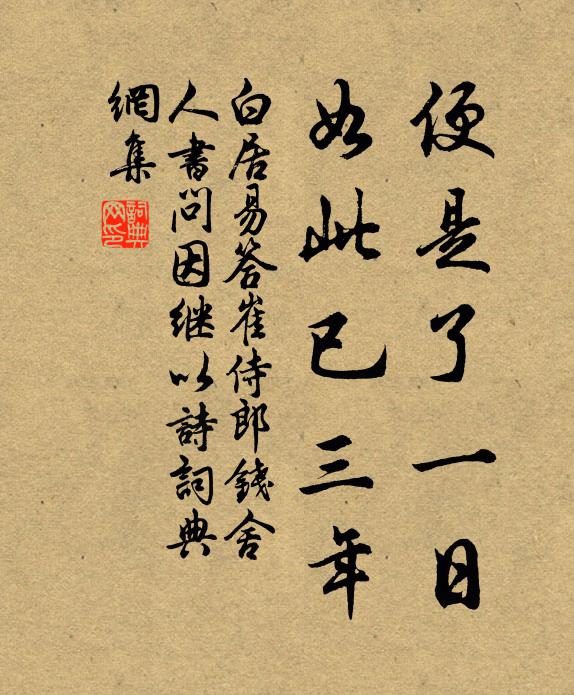 便是了一日
如此已三年
白居易答崔侍郎錢舍
人書問因继以詩詞典
網集
詞典
网印